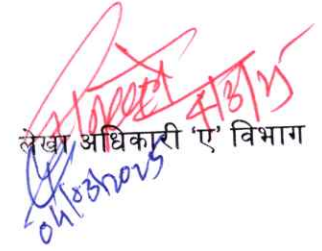 4/3/25
लेखा अधिकारी 'ए' विभाग
04/03/2025